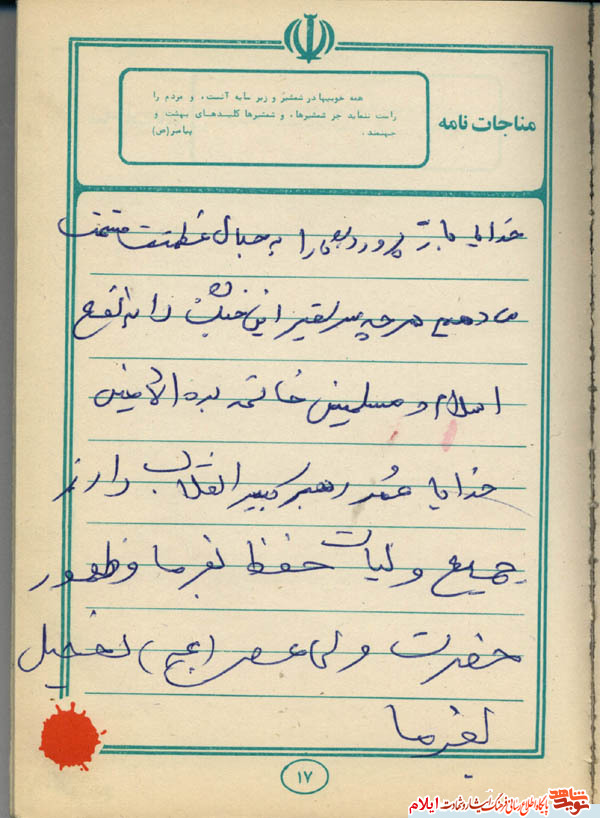 مناجات نامه
همه خوبیها در شمشیر و زیر سایه آنست، و مردم را
راست ننماید جز شمشیرها، و شمشیرها کلیدهای بهشت و
جهنمند. پیامبر(ص)
خدایا بار پروردگارا به جلال عظمتت قسمت
میدهیم هر چه سریعتر این جنگ را به نفع
اسلام و مسلمین خاتمه بده الامین
خدایا عمر رهبر کبیر انقلاب را از
جمیع بلیات حفظ بفرما و ظهور
حضرت ولی عصر (عج) تعجیل
بفرما
۱۷
نوید شاهد
پایگاه اطلاع رسانی فرهنگ ایثار و شهادت ایلام